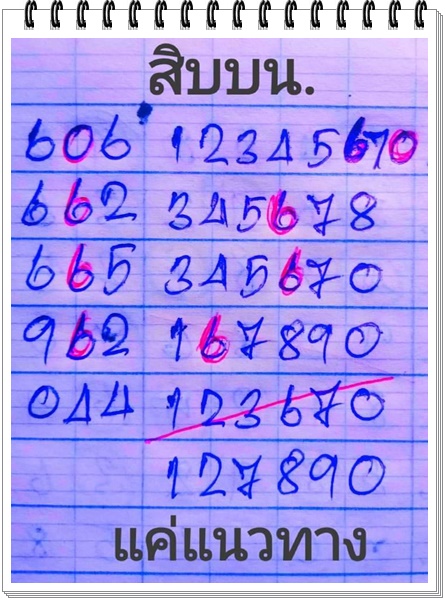 สิบบน.
606 12345670
662 345678
665 345670
962 167890
044 123670
127890
แค่แนวทาง